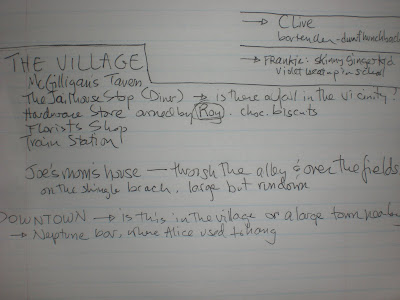 → Clive
bartender - dwarf hunchback
→ Frankie: skinny Ginger kid
Violet in school
THE VILLAGE
McGilligans Tavern
The Jailhouse Stop (Diner) → is there a jail in the vicinity?
Hardware Store owned by Roy. choc. biscuits
Florists Shop
Train Station
Joe's mom's house — through the alley & over the fields
on the shingle beach, large but rundown
DOWNTOWN → is this in the village or a large town nearby
→ Neptune bar, where Alice used to hang